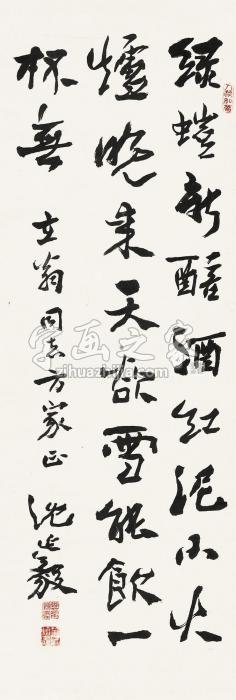 綠螘新醅酒紅泥小火
爐晚來天欲雪能飲一
杯無 立翁同志方家正 沈延毅
字画之家
zihuazhijia.com